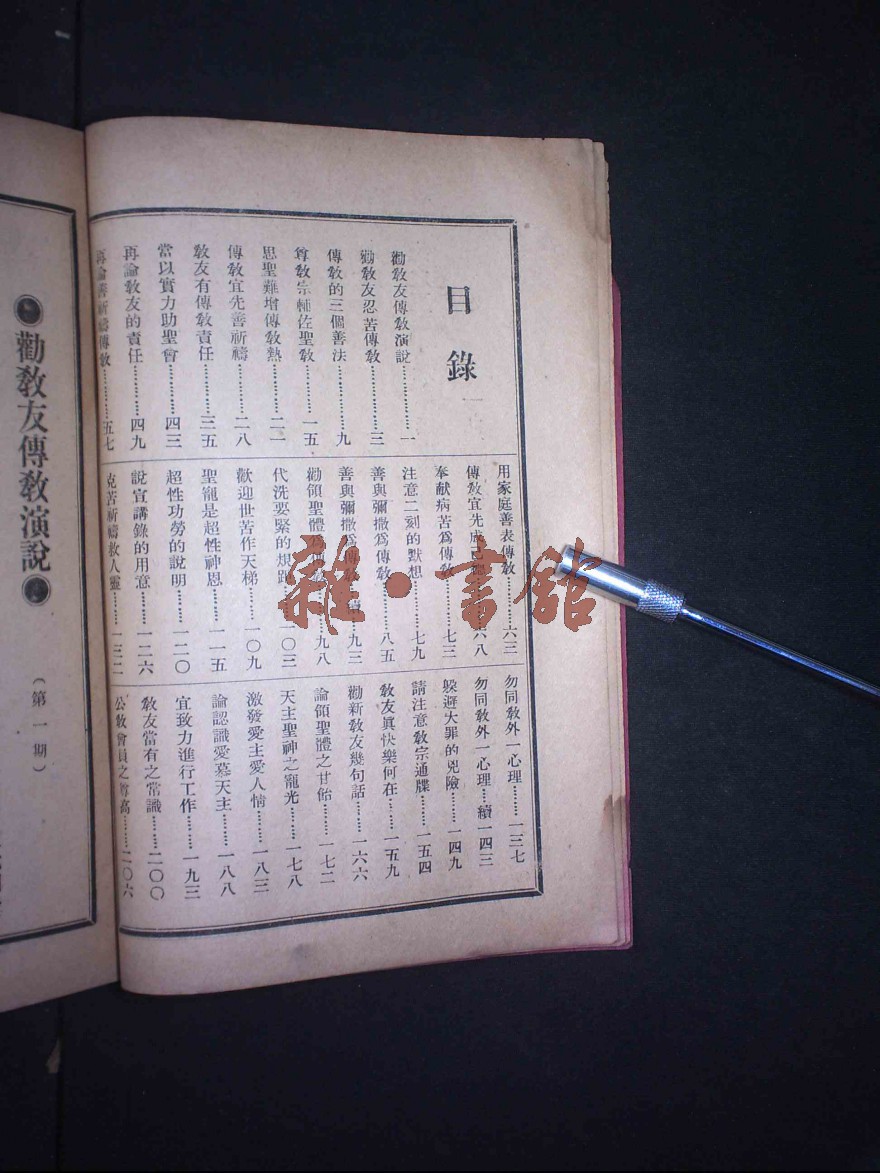 目錄
勸敎友傳敎演說………一
勸敎友忍苦傳敎………三
傳敎的三個善法………九
尊敎宗輔佐聖敎………一五
思聖難增傳敎熱………二一
傳敎宜先善祈禱………二八
敎友有傳敎責任………三五
當以實力助聖會………四三
再論敎友的責任………四九
再論善祈禱傳敎………五七
用家庭善表傳敎………六三
傳敎宜先成己……六八
奉献病苦爲傳敎………七三
注意二刻的默想………七九
善與彌撒爲傳敎………八五
善與彌撒爲傳敎…續…九三
勸領聖體爲傳敎………九八
代洗要緊的規……一〇三
歡迎世苦作天梯………一〇九
聖寵是超性神恩………一一五
超性功勞的說明………一二〇
說宣講錄的用意………一二六
克苦祈禱救人靈………一三二
勿同敎外一心理………一三七
勿同敎外一心理…續一四三
躲避大罪的兇險………一四九
請注意敎宗通牒………一五四
敎友眞快樂何在………一五九
勸新敎友幾句話………一六六
論領聖體之甘飴………一七二
天主聖神之寵光………一七八
激發愛主愛人情………一八三
論認識愛慕天主………一八八
宜致力進行工作………一九三
敎友當有之常識………二〇〇
公敎會員之尊高………二〇六
勸敎友傳敎演說
（第一期）
雜·書館